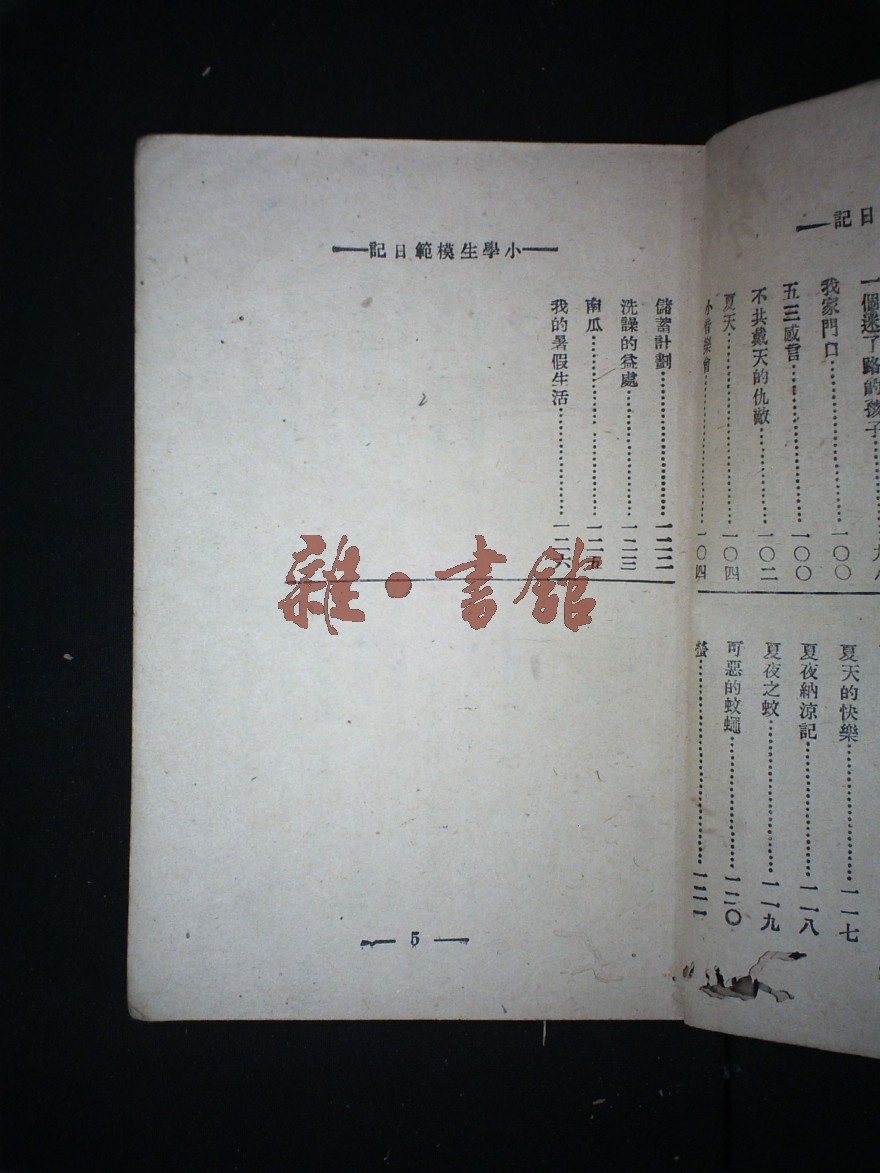 日記
一個迷了路的孩子…………九八
我家門口…………一〇〇
五三感言…………一〇〇
不共戴天的仇敵…………一〇二
夏天…………一〇四
小音樂會…………一〇四
夏天的快樂…………一一七
夏夜納涼記…………一一八
夏夜之蚊…………一一九
可惡的蚊蠅…………一二〇
螢…………一二一
小學生模範日記
儲蓄計劃…………一二二
洗譟的益處…………一二三
南瓜…………一二五
我的暑假生活…………一二六
5
雜·書館